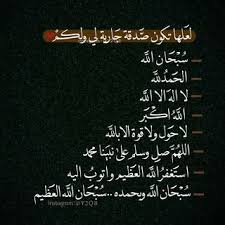 لعلها تكون صدقة جارية لي ولكم
سُبْحَان الله
الحَمدُ لله
لا اله الا الله
اللهُ اكْبَر
لا حَول ولا قوة الا بالله
اللهُمَّ صلِ وسلم على نبينا محمد
استغفرُ الله العظيم واتوبُ اليه
سُبْحَان الله وبحمده .. سُبْحَان الله العظيم